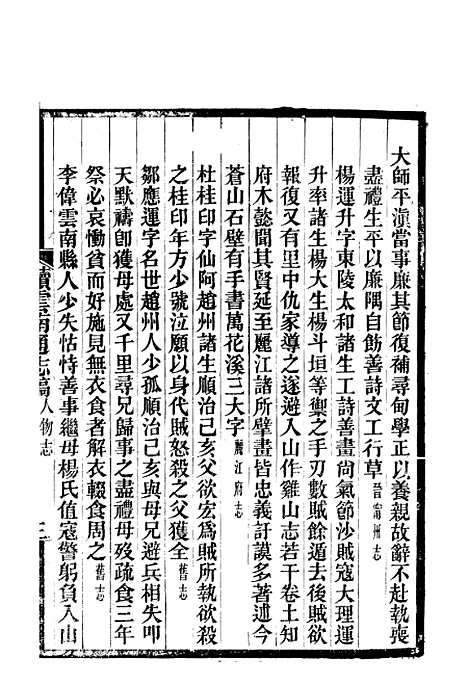 大師平滇當事廉其節復補尋甸學正以養親故辭不赴執喪
盡禮生平以廉隅自飭善詩文工行草晉甯州志
楊運升字東陵太和諸生工詩善畫尚氣節沙賊寇大理運
升率諸生楊大生楊斗垣等禦之手刃數賊餘遁去後賊欲
報復又有里中仇家導之遂避入山作雞山志若干卷土知
府木懿聞其賢延至麗江諸所擘畫皆忠義訏謨多著述今
蒼山石壁有手書萬花溪三大字麗江府志
杜桂印字仙阿趙州諸生順治己亥父欲宏爲賊所執欲殺
之桂印年方少號泣願以身代賊怒殺之父獲全舊志
鄒應運字名世趙州人少孤順治己亥與母兄避兵相失叩
天默禱卽獲母處又千里尋兄歸事之盡禮母歿疏食三年
祭必哀慟貧而好施見無衣食者解衣輟食周之舊志
李偉雲南縣人少失怙恃善事繼母楊氏值寇警躬負入山
續雲南通志稿人物志
三